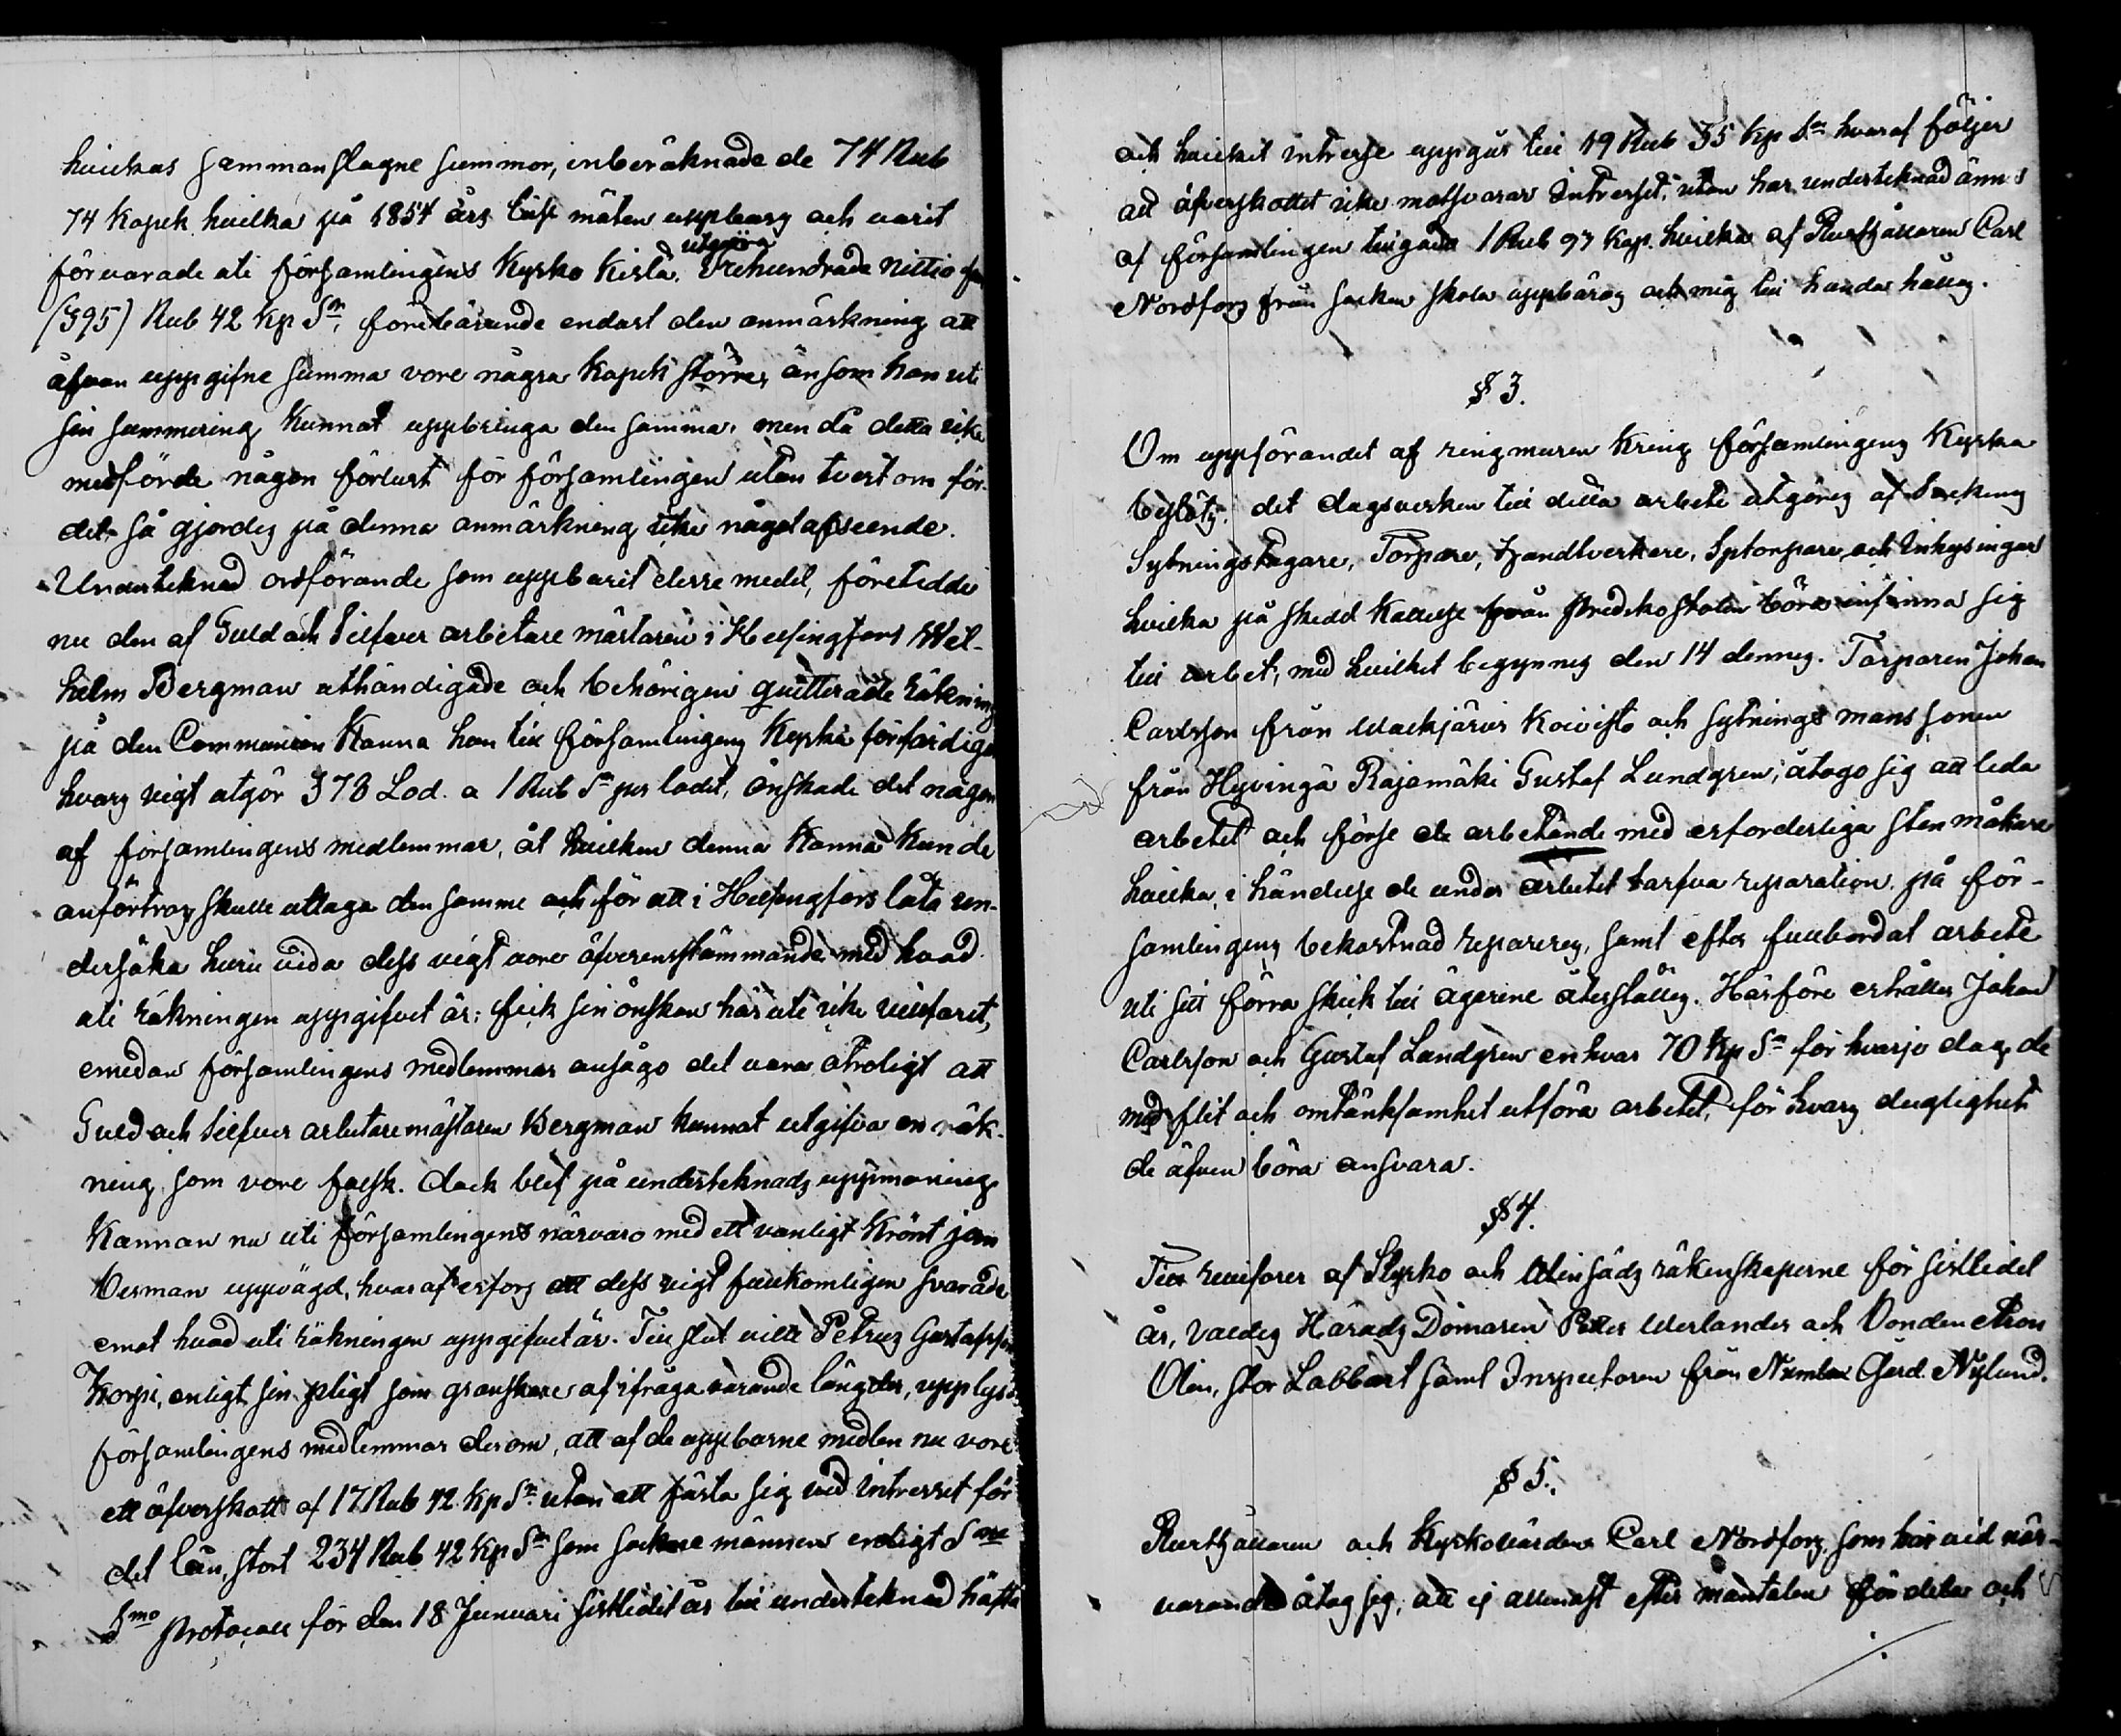 hvilkas sammanslagne summor, inberäknade de 74 Rub
74 Kopek hvilka på 1854 års Lius möten uppburos och varit
förvarade uti församlingens Kyrko Kista, utgöra Trehundrade Nittio fem
(395) Rub 42 Kp Sr, förebärande endast den anmärkning att
åfvan uppgifne summa vore några Kopek större, än som han uti
sin summering Kunnat uppbringa den samma, men då detta icke
medförde någon förlust för församlingen utan tvert om för-
del, så gjordes på denna anmärkning icke något afseende.
Undertecknad ordförande som uppburit desse medel, företedde
nu den af Guld och Silfver arbetare mästaren i Helsingfors Wil-
helm Bergman uthändigade och behörigen quitterade räkning
på den Communion Kanna han till församlingens Kyrka förfärdigat
hvars vigt utgör 378 Lod. a 1 Rub Sr per lodet, önskade det någon
af församlingens medlemmar, åt hvilken denna Kanna Kunde
anförtros, skulle uttaga den samma och för att i Helsingfors låta un-
dersöka huru vida dess vigt vore öfverensstämmande med hvad
uti räkningen uppgifvet är; fick sin önskan häruti icke villfarit,
emedan församlingens medlemmar ansågo det vara otroligt att
Guld och Silfver arbetaremästaren Bergman kunnat utgifva en räk-
ning, som vore falsk. dock blef på undertecknads uppmaning
Kannan nu uti församlingens närvaro med ett vanligt Krönt jern
besman uppvägd, hvaraf erfors att dess vigt fullkomligen svarade
emot hvad uti räkningen uppgifvet är. Till slut ville Petrus Gustafsson
Korpi, enligt sin pligt som granskare af ifråga varande längder, upplysa
församlingens medlemmar derom, att af de uppburne medlen nu vore
ett öfverskott af 17 Rub 42 Kp Sr utan att fästa sig vid intresset för
det lån, stort 234 Rub 42 Kp Sr som sockne männen enligt
5mo Protocoll för den 18 Januari sistlidit år till undertecknad häfta
och hvilket intresse uppgår till 19 Rub 35 Kp Sr hvaraf följer
att öfverskottet icke motsvarar Intresset, utan har undertecknad ännu
af församlingen tillgodo 1 Rub 97 Kop. hvilka af Rusthållaren Carl
Nordfors från socken skola uppbäras och mig till handa hållas.
§ 3.
Om uppförandet af ringmuren Kring församlingens Kyrka
beslöts: det dagsverken till detta arbete utgöres af Sockens
Sytningstagare, Torpare, Handtverkare, Sptorpare, och Inhysingar
hvilka på skedd Kallelse från Predikostolen böra infinna sig
till arbet, med hvilket begynnes den 14 dennes. Torparen Johan
Carlsson från Waekjärvi Koivisto och sytnings mans sonen
från Hyvingä Rajamäki Gustaf Lundgren; åtogo sig att leda
arbetet och förse de arbetande med erforderliga sten måkare
hvilka, i händelse de under arbetet tarfva reparation på för-
samlingens bekostnad repareres, samt efter fullbordat arbete
uti sitt förra skick till ägarene återställes. Härföre erhåller Johan
Carlsson och Gustaf Lundgren en hvar 70 Kp Sr för hvarje dag, de
med flit och omtänksamhet utföra arbetet, för hvars duglighet
de äfven böra ansvara.
§ 4.
Till revisorer af Kyrko och Winsäds räkenskaperne för sistlidet
år, valdes Härads Domaren Petter Werlander och Bonden Aron
Olin, stor Labbart samt Inspectoren från Numlax Gerd. Nylund.
§ 5.
Rusthållaren och Kyrkovärden Carl Nordfors, som här vid när-
varande åtog sig, att ej allenast efter mantalen fördela och